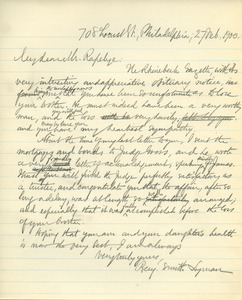 708 Locust St., Philadelphia, 27 Feb. 1900.
My dear Mr. Rapelye
The Rhinebeck Gazette, with its
very interesting and appreciative obituary notice, has
informed me that you have been so unfortunate as to lose
your brother. He must indeed have been a very worthy
man, and the loss will be very
and you have my heartfelt sympathy.
About the time your last letter came, I sent the
mortgage and bonds to Judge Wood, and he wrote
a very kindly letter of acknowledgment,
Trust you will find the Judge perfectly satisfactory as
a trustee, and congratulate you that the affair, after so
long a delay, was at length so satisfactorily arranged,
and especially that it was accomplished before the loss
of your brother.
Hoping that you are and your daughter's health
is now the very best, I am always
Very truly yours,
Benj. Smith Lyman.